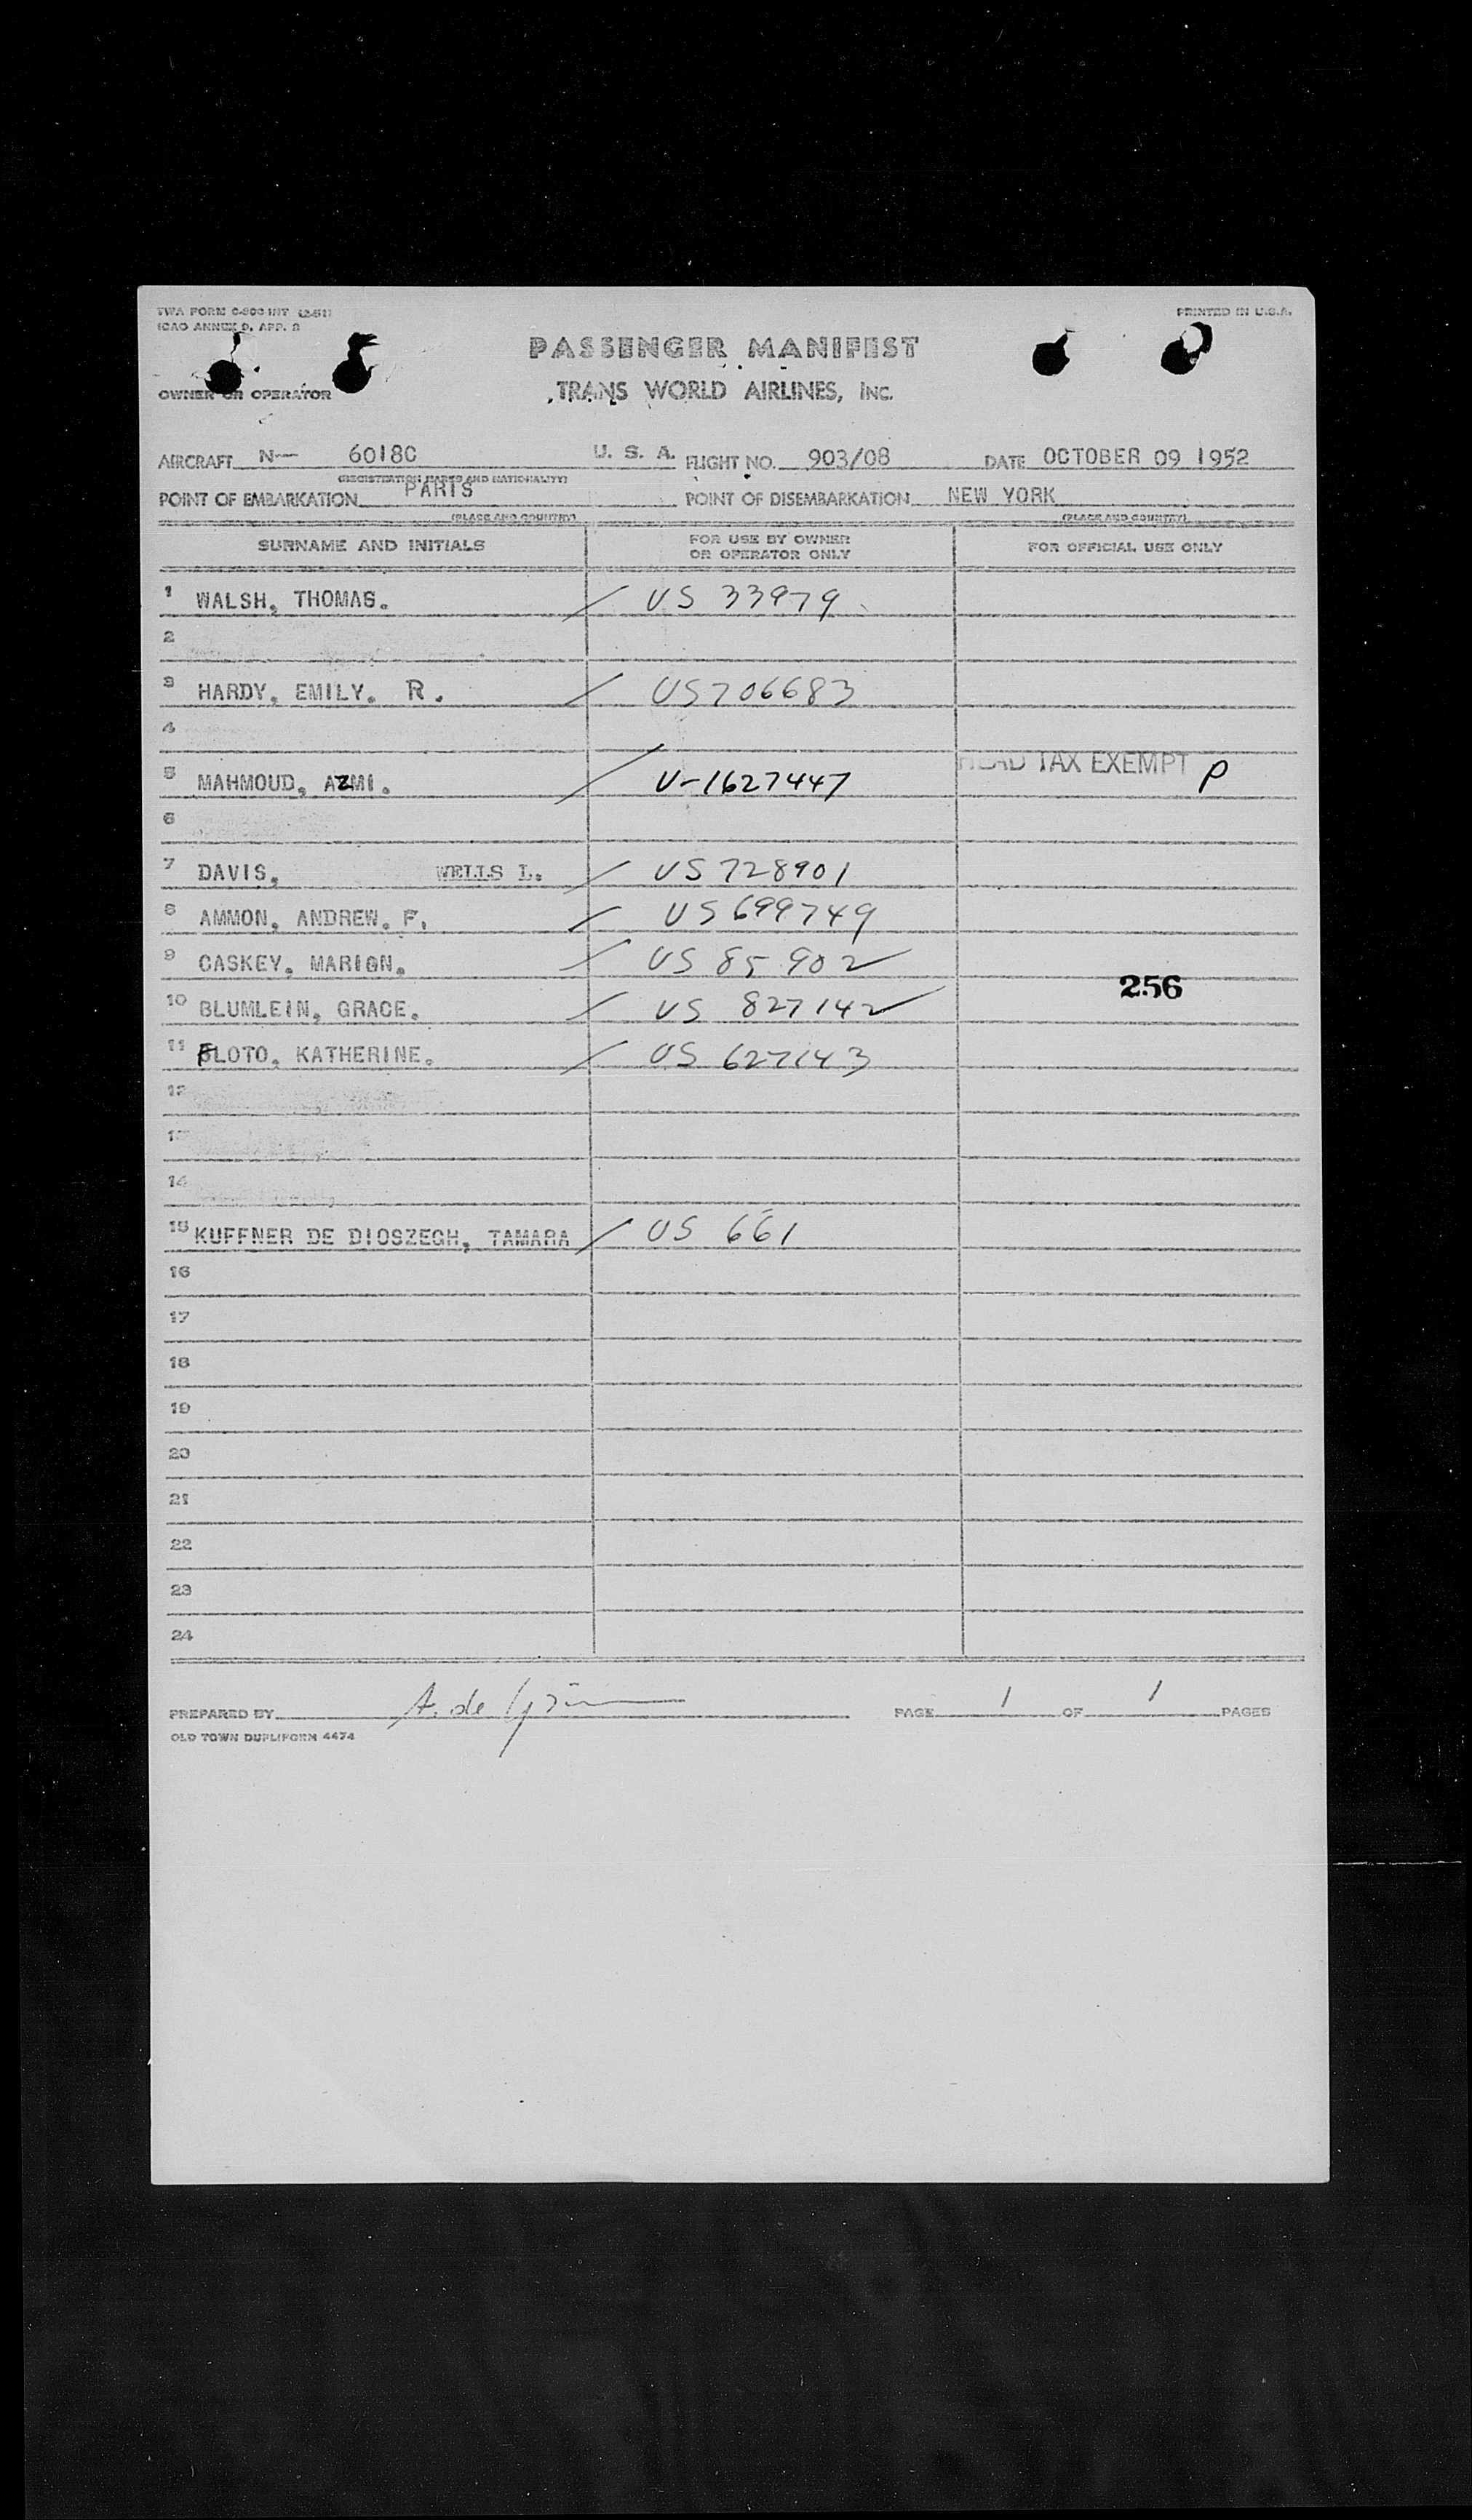 TWA FORM C-800 INT (2-51)
PRINTED IN U.S.A.
ICAO ANNEX 9, APP. 2
PASSENGER MANIFEST
OWNER OR OPERATOR
TRANS WORLD AIRLINES, INC.
AIRCRAFT N— 6018C U. S. A. FLIGHT NO. 903/08 DATE OCTOBER 09 1952
(REGISTRATION MARKS AND NATIONALITY)
POINT OF EMBARKATION PARIS POINT OF DISEMBARKATION NEW YORK
(PLACE AND COUNTRY) (PLACE AND COUNTRY)
SURNAME AND INITIALS FOR USE BY OWNER OR OPERATOR ONLY FOR OFFICIAL USE ONLY
1 WALSH, THOMAS. / US 33979
2
3 HARDY, EMILY. R. / US 706683
4
5 MAHMOUD, AZMI. / V-1627447 HEAD TAX EXEMPT P
6
7 DAVIS, WELLS L. / US 728901
8 AMMON, ANDREW. F. / US 699749
9 CASKEY, MARION. / US 85902
256
10 BLUMLEIN, GRACE. / US 827142
11 FLOTO, KATHERINE. / US 627143
12
13
14
15 KUFFNER DE DIOSZEGH, TAMARA / US 661
16
17
18
19
20
21
22
23
24
PREPARED BY A. de PAGE 1 OF 1 PAGES
OLD TOWN DUPLIFORM 4474